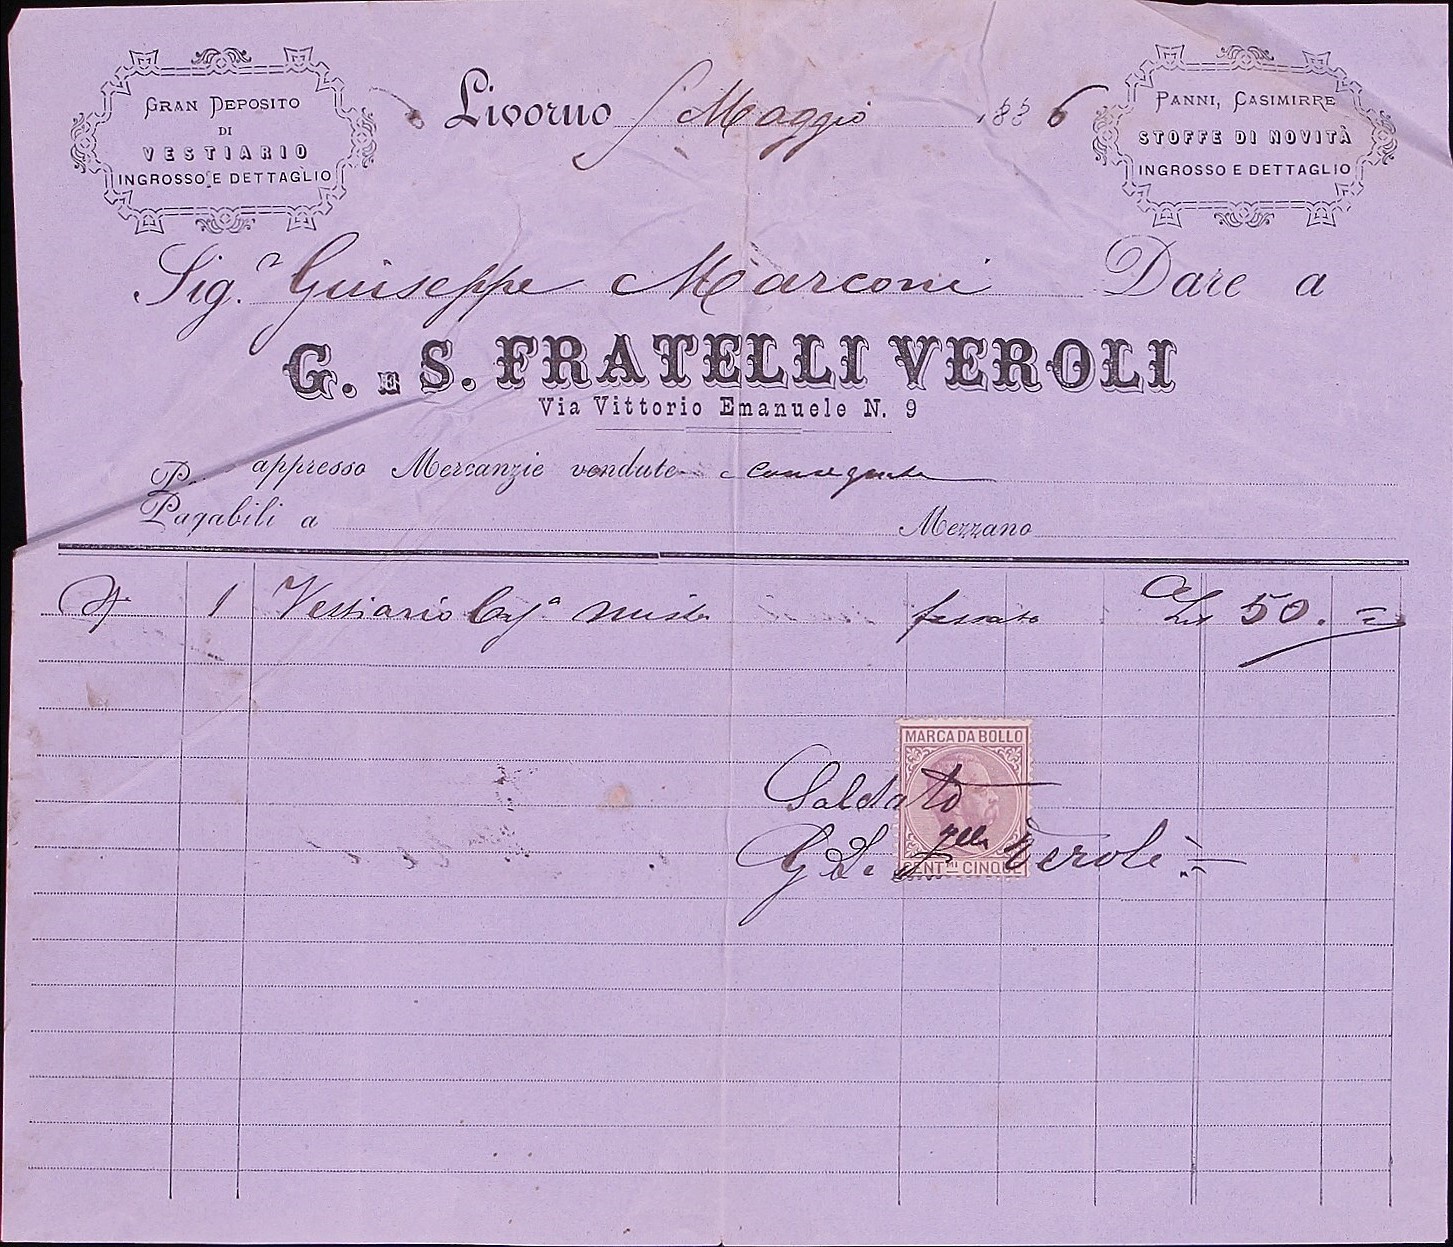 GRAN DEPOSITO
DI
VESTIARIO
INGROSSO E DETTAGLIO
Livorno Maggio 1886
PANNI, CASIMIRRE
STOFFE DI NOVITÀ
INGROSSO E DETTAGLIO
Sig.r Giuseppe Marconi Dare a
G. E S. FRATELLI VEROLI
Via Vittorio Emanuele N. 9
P. appresso Mercanzie vendute e consegnate
Pagabili a Mezzano
1 Vestiario mista 50. =
MARCA DA BOLLO
Saldato
G S. F.lli Veroli
CENT.MI CINQUE